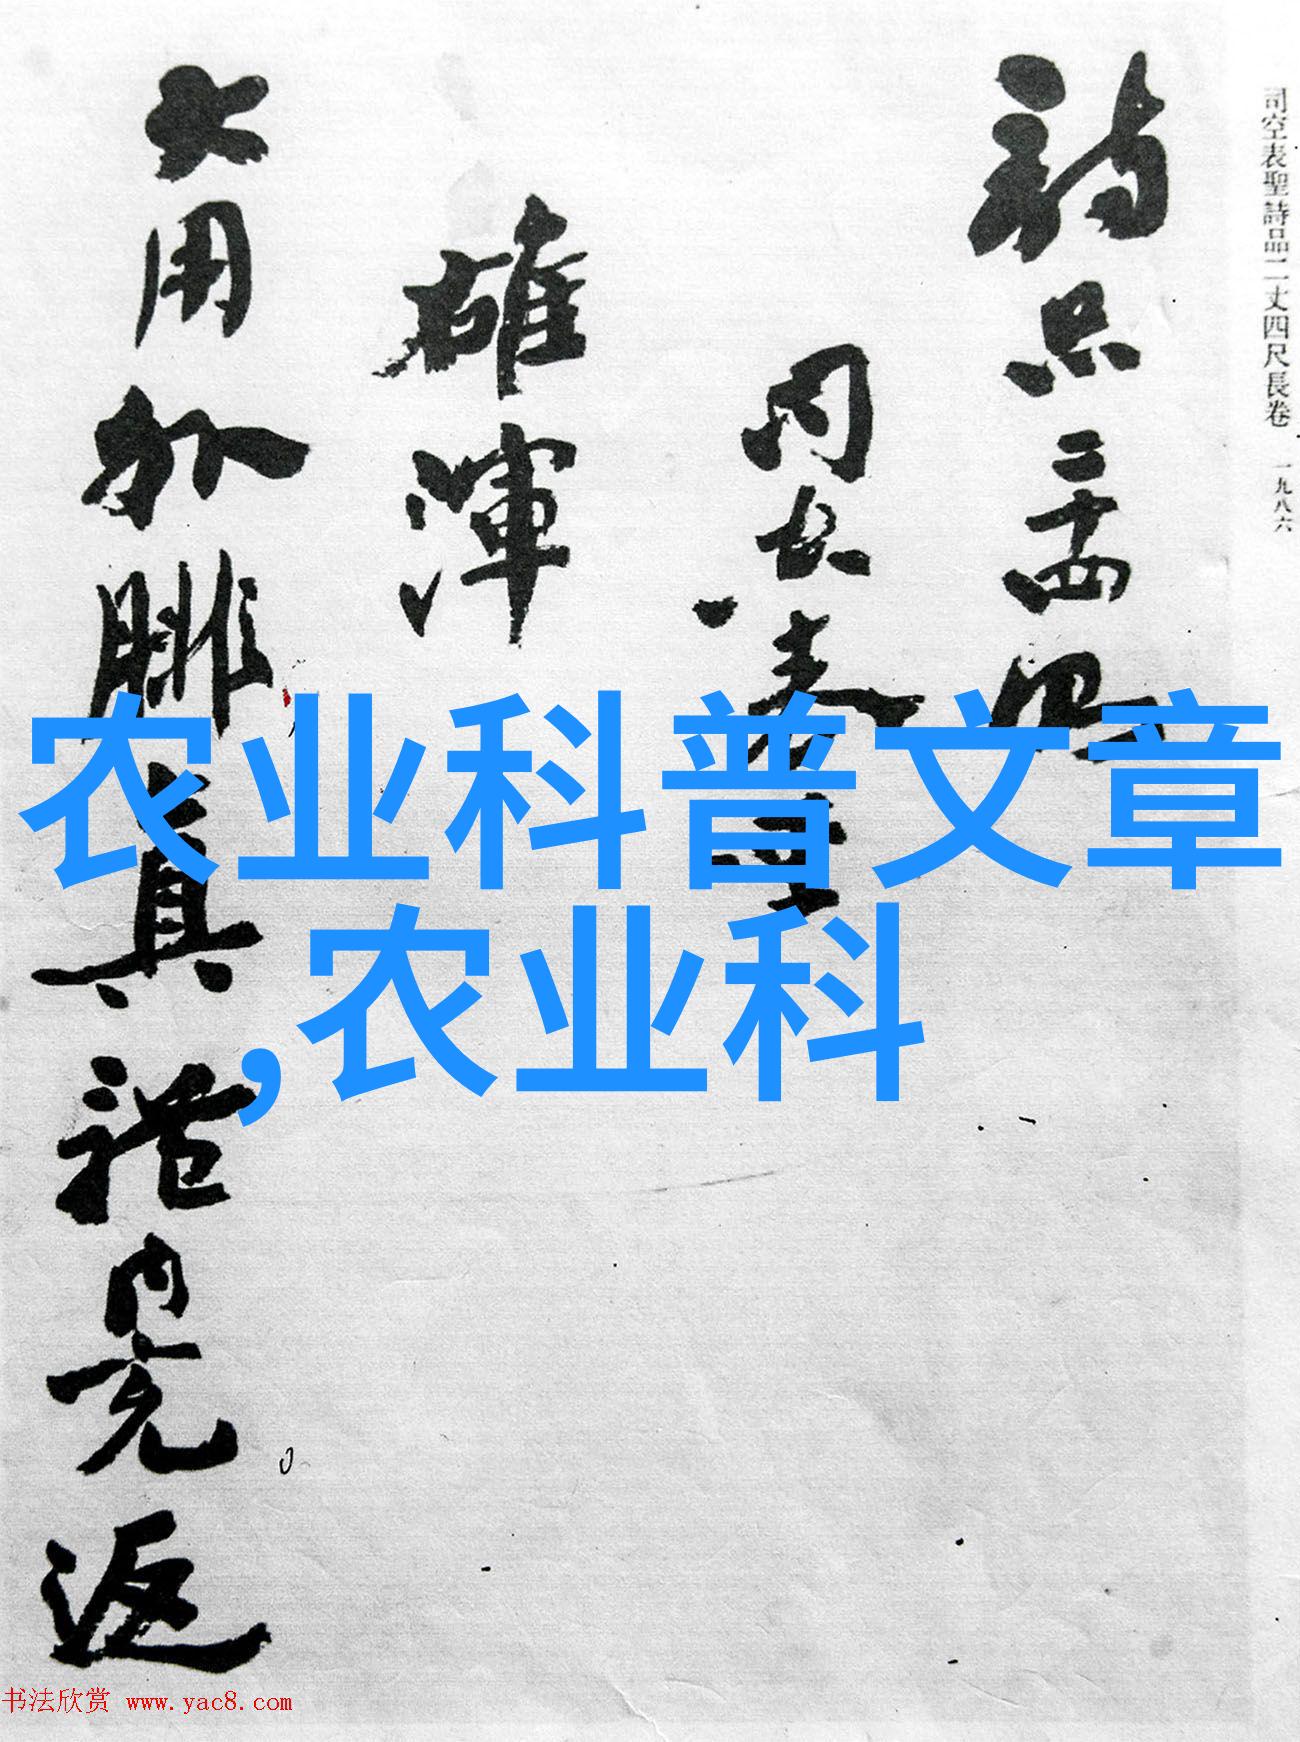 司空表聖詩品二丈四尺長卷 一九八六
詩品二十四則
司空表聖
雄渾
大用外腓真體內充返
农业科普文章
,农业科
书法欣赏 www.yac8.com